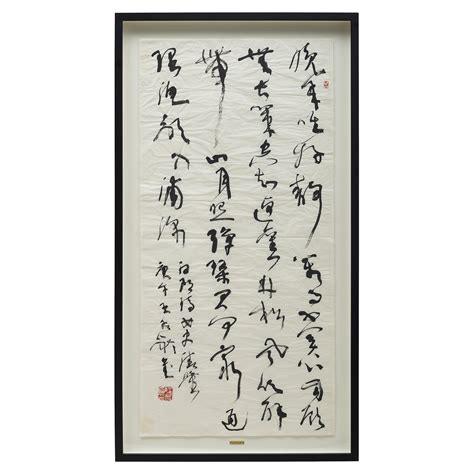 晚年唯好靜萬事不關心自顧
無長策空知返舊林松風吹解
帶山月照彈琴君問窮通
理漁歌入浦深
庚午